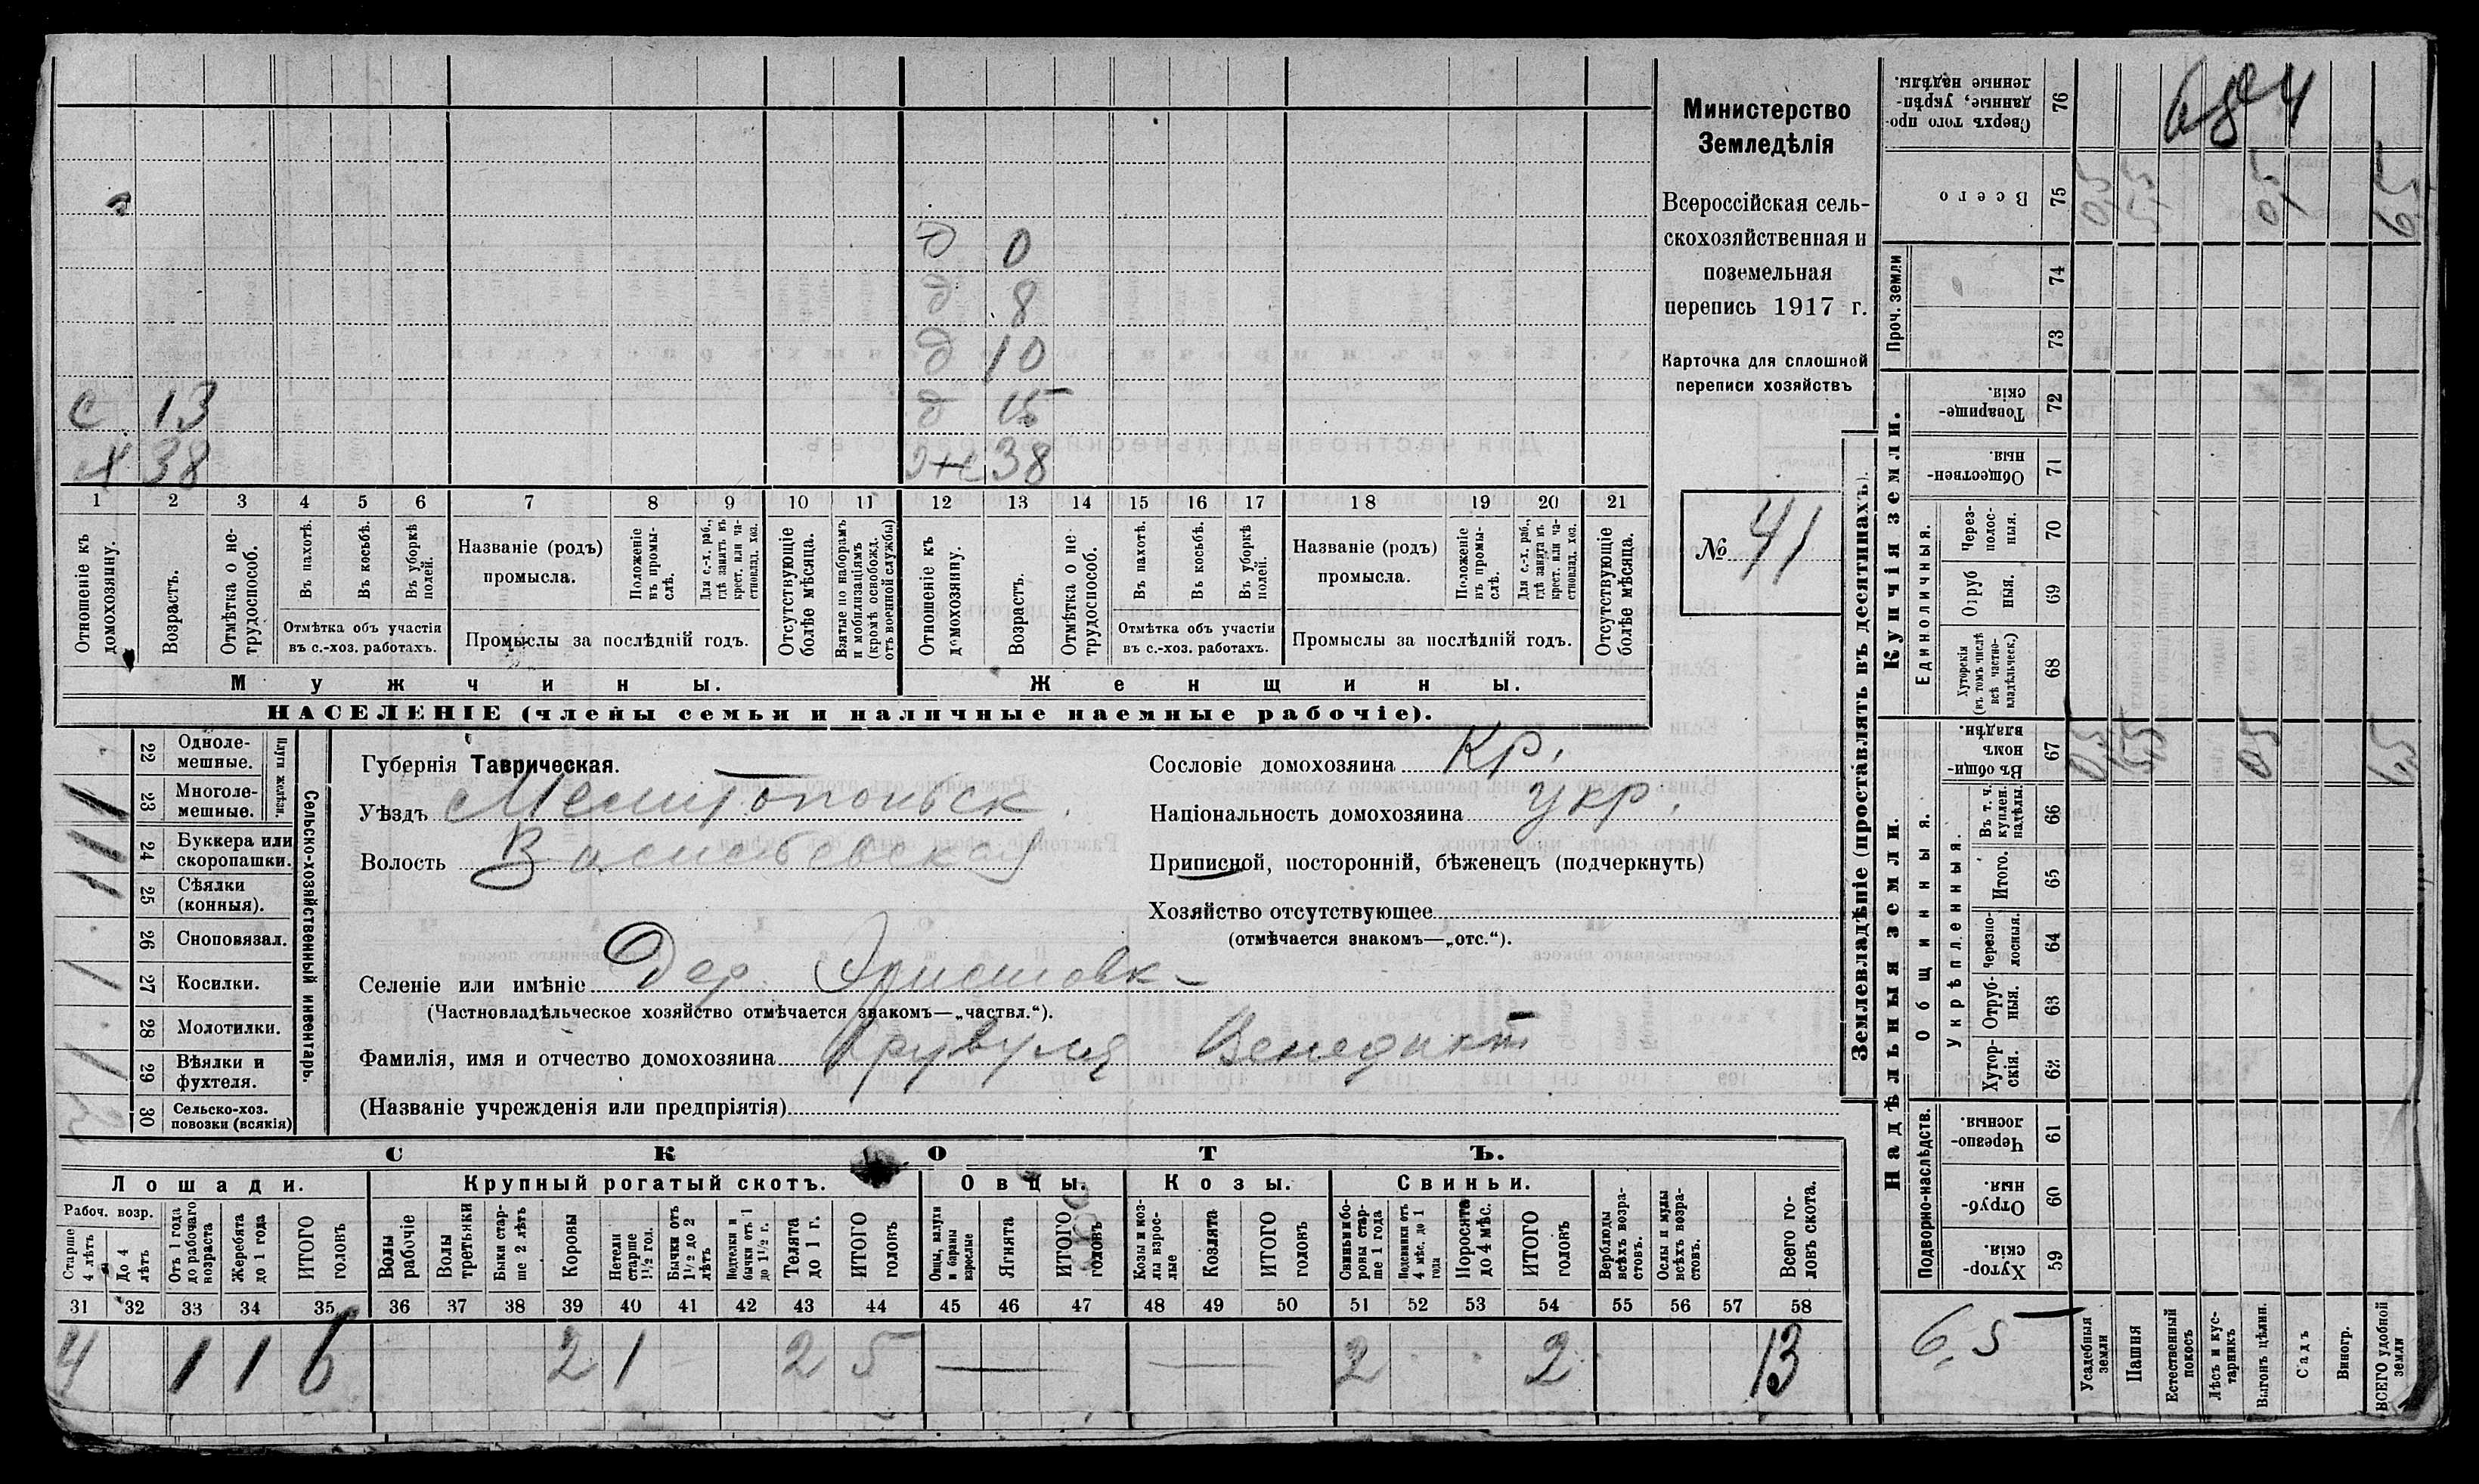 Министерство
Земледѣлія
Всероссійская сель-
скохозяйственная и
поземельная
перепись 1917 г.
Карточка для сплошной
переписи хозяйствъ
№ 41
684
д 0
д 8
д 10
с 13 д 15
38 же 38
1 2 3 4 5 6 7 8 9 10 11 12 13 14 15 16 17 18 19 20 21
Отношеніе къ домохозяину.
Возрастъ.
Отмѣтка о не-трудоспособ.
Въ пахотѣ.
Въ косьбѣ.
Въ уборкѣ полей.
Отмѣтка объ участіи
въ с.-хоз. работахъ.
Названіе (родъ)
промысла.
Положеніе въ промы-слѣ.
Для с.-х. раб., гдѣ занятъ въ крест. или ча-стновлад. хоз.
Промыслы за послѣдній годъ.
Отсутствующіе болѣе мѣсяца.
Взятые по наборамъ и мобилизаціямъ (кромѣ освобожд. отъ военной службы)
Отношеніе къ домохозяину.
Возрастъ.
Отмѣтка о не трудоспособ.
Въ пахотѣ.
Въ косьбѣ.
Въ уборкѣ полей.
Отмѣтка объ участіи
въ с.-хоз. работахъ.
Названіе (родъ)
промысла.
Положеніе въ промы-слѣ.
Для с.-х. раб., гдѣ занята въ крест. или ча-стновлад. хоз.
Промыслы за послѣдній годъ.
Отсутствующіе болѣе мѣсяца.
Мужчины. Женщины.
НАСЕЛЕНІЕ (члены семьи и наличные наемные рабочіе).
Сельско-хозяйственный инвентарь.
Плуги желѣзн.
22 Одноле-мешные.
1 23 Многоле-мешные.
1 24 Буккера или скоропашки.
1 25 Сѣялки (конныя).
26 Сноповязал.
1 27 Косилки.
28 Молотилки.
1 29 Вѣялки и фухтеля.
30 Сельско-хоз. повозки (всякія)
Губернія Таврическая.
Уѣздъ Мелитопольск.
Волость Васильевская
Селеніе или имѣніе Дер.
(Частновладѣльческое хозяйство отмѣчается знакомъ—„частвл.“).
Фамилія, имя и отчество домохозяина Венедикт
(Названіе учрежденія или предпріятія)
Сословіе домохозяина Кр.
Національность домохозяина укр.
Приписной, посторонній, бѣженецъ (подчеркнуть)
Хозяйство отсутствующее
(отмѣчается знакомъ—„отс.“).
СКОТЪ.
Лошади. Крупный рогатый скотъ. Овцы. Козы. Свиньи.
Рабоч. возр.
Старше 4 лѣтъ
До 4 лѣтъ
Отъ 1 года до рабочаго возраста
Жеребята до 1 года
ИТОГО головъ
Волы рабочіе
Волы третьяки
Быки стар-ше 2 лѣтъ
Коровы
Нетели старше 1½ год.
Бычки отъ 1½ до 2 лѣтъ
Подтелки и бычки отъ 1 до 1½ г.
Телята до 1 г.
ИТОГО головъ
Овцы, валухи и бараны взрослые
Ягнята
ИТОГО головъ
Козы и коз-лы взрос-лые
Козлята
ИТОГО головъ
Свиньи бо-ровы стар-ше 1 года
Подсвинки отъ 4 мѣс. до 1 года
Поросята до 4 мѣс.
ИТОГО головъ
Верблюды всѣхъ возра-стовъ.
Ослы и мулы всѣхъ возра-стовъ.
Всего го-ловъ скота.
31 32 33 34 35 36 37 38 39 40 41 42 43 44 45 46 47 48 49 50 51 52 53 54 55 56 57 58
4 1 1 6 2 1 2 5 — — 2 2 13
Землевладѣніе (проставлять въ десятинахъ).
Надѣльныя земли. Купчія земли.
Подворно-наслѣдств.
Общинныя.
Укрѣпленныя.
Единоличныя.
Проч. земли
59 Хутор-скія.
60 Отруб-ныя.
61 Черезпо-лосныя.
62 Хутор-скія.
63 Отруб-ныя.
64 Черезпо-лосныя.
65 Итого.
66 Въ т. ч. куплен. надѣлы.
67 Въ общи-номъ владѣн.
68 Хуторскія (въ томъ числѣ всѣ частно-владѣльческ.)
69 Отруб ныя.
70 Через-полос-ныя.
71 Обществен-ныя.
72 Товарище-скія.
73
74
75 Всего
76 Сверхъ того про-данные, укрѣп-ленные надѣлы.
0,5 5,5 0,5 6,5
0,5 5,5 0,5 6,5
6,5
Усадебныя земли
Пашня
Естественный покосъ
Лѣсъ и кус-тарникъ
Выгонъ цѣлин.
Садъ
Виногр.
ВСЕГО удобной земли